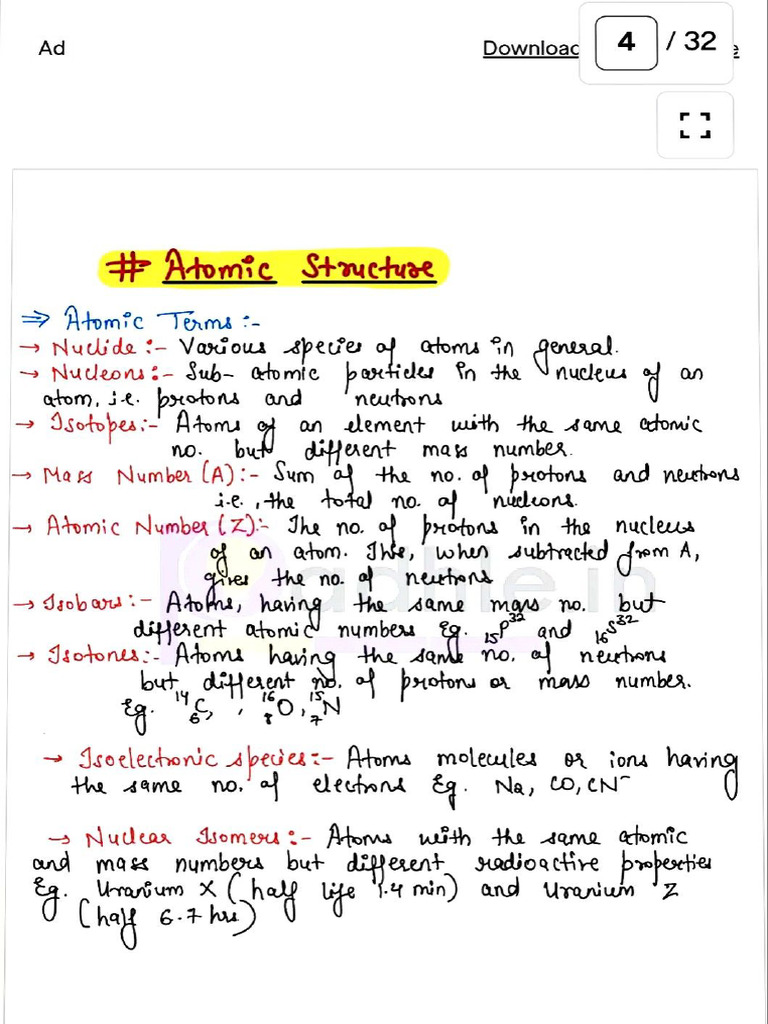 Ad
Download
4 / 32
e
# Atomic Structure
⇒ Atomic Terms :-
→ Nuclide :- Various species of atoms in general.
→ Nucleons :- Sub-atomic particles in the nucleus of an
atom, i.e. protons and neutrons
→ Isotopes :- Atoms of an element with the same atomic
no. but different mass number.
→ Mass Number (A) :- Sum of the no. of protons and neutrons
i.e., the total no. of nucleons.
→ Atomic Number (Z) :- The no. of protons in the nucleus
of an atom. This, when subtracted from A,
gives the no. of neutrons
adhle.in
→ Isobars :- Atoms, having the same mass no. but
different atomic numbers Eg. ₁₅P³² and ₁₆S³²
→ Isotones :- Atoms having the same no. of neutrons
but different no. of protons or mass number.
Eg. ¹⁴₆C, , ¹⁶₈O, ¹⁵₇N
→ Isoelectronic species :- Atoms molecules or ions having
the same no. of electrons Eg. Na, CO, CN⁻
→ Nuclear Isomers :- Atoms with the same atomic
and mass numbers but different radioactive properties
Eg. Uranium X (half life 1.4 min) and Uranium Z
(half 6.7 hrs)